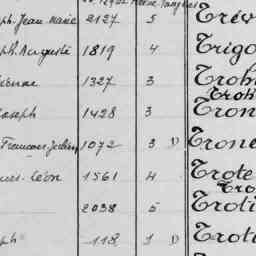 ph. Jean Marie 2127 5 Trév
ph. Auguste 1819 4 Trigo
ienne 1327 3 Trob
Joseph 1428 3 Tron
François Julien 1072 3 D Trone
Léon 1561 4 Trote
Tro
2038 5 Troti
ph 118 1 D Trot